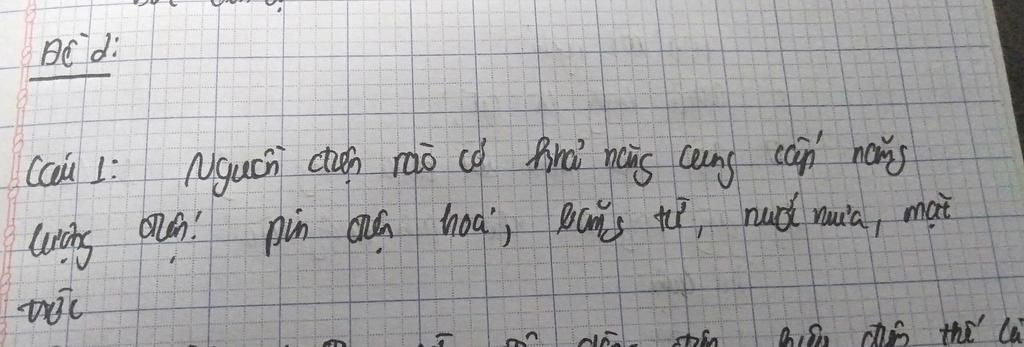 Đề d:
Câu 1: Nguồn điện nào có khả năng cung cấp năng
lượng điện: pin điện hoá, băng từ, nước mưa, mặt
trời
thì là